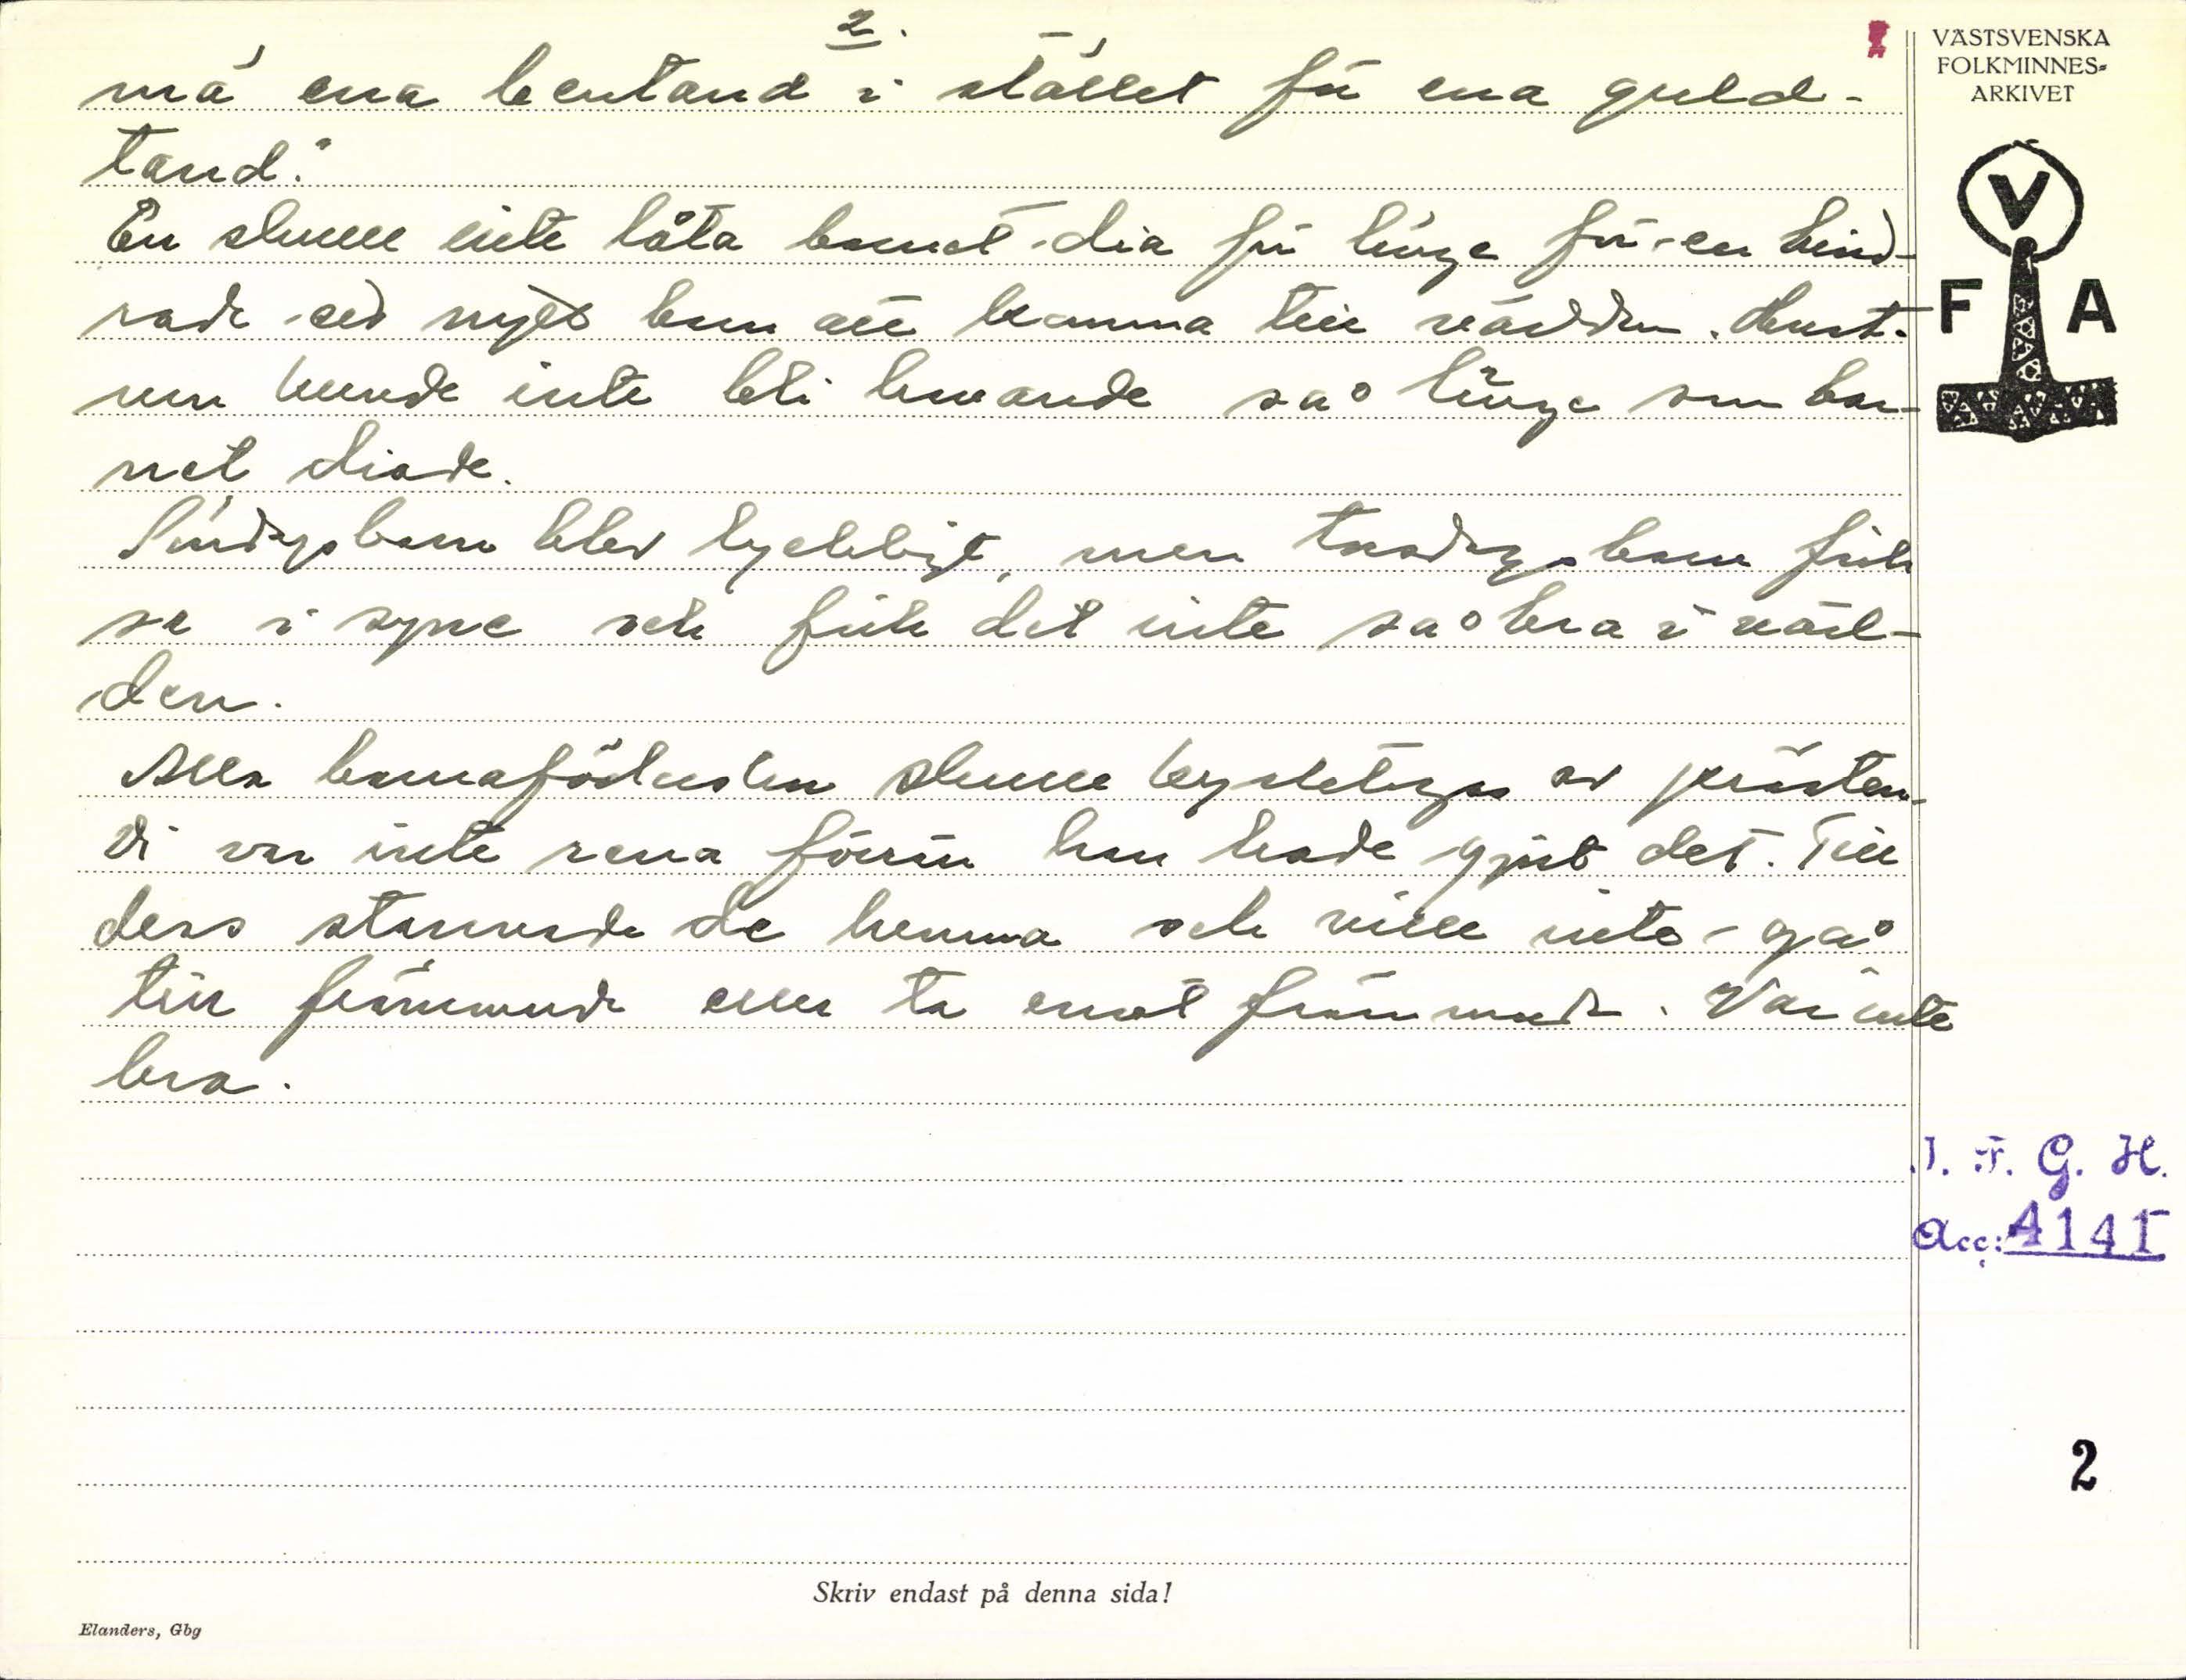 2.
må ena bentand i stället för ena guld-
tand."
En skulle inte låta barnet dia för länge för en hind-
rade ed nytt barn att komma till världen. Hust-
run kunde inte bli havande så länge som bar-
net diade.
Söndagsbarn blev lyckligt, men torsdagsbarn fick
se i syne och fick det inte så bra i värl-
den.
Alla barnaföderskor skulle kyrktagas av prästen.
Di var inte rena förrän han hade gjort det. Till
dess stannade de hemma och ville inte gå
till främmande eller ta emot främmande. Var inte
bra.
VÄSTSVENSKA
FOLKMINNES-
ARKIVET
V
F A
I. F. G. H.
Acc: 4141
2
Skriv endast på denna sida!
Elanders, Gbg